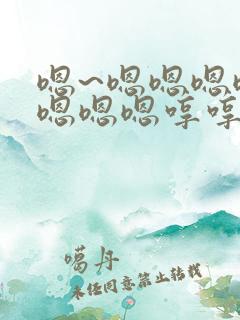 嗯~嗯嗯嗯
嗯嗯嗯哼哼
噶丹
未经同意禁止转载